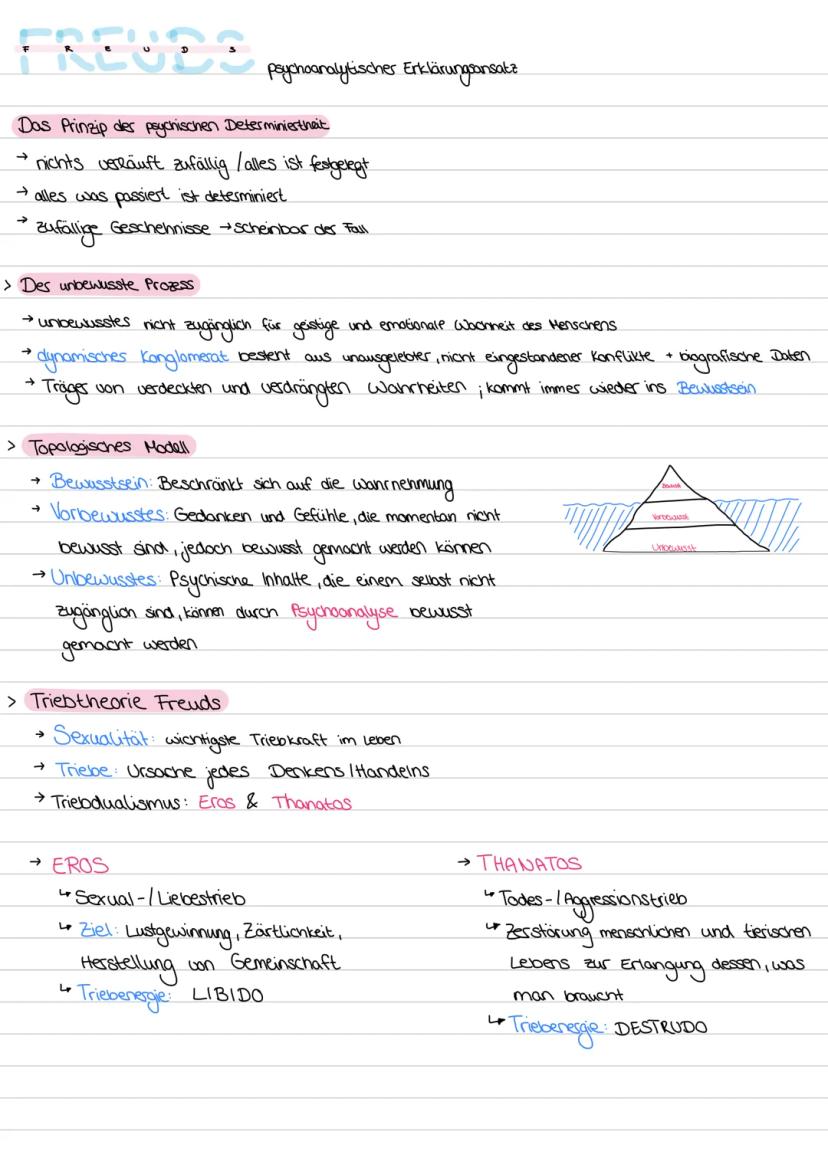 FREUDS
psychoanalytischer Erklärungsansatz
Das Prinzip der psychischen Determiniertheit
→ nichts verläuft zufällig / alles ist festgelegt
→ alles was passiert ist determiniert
→ zufällige Geschehnisse → scheinbar der Fall
> Der unbewusste Prozess
→ unbewusstes nicht zugänglich für geistige und emotionale Wachheit des Menschens
→ dynamisches Konglomerat besteht aus unausgelebter, nicht eingestandener Konflikte + biografische Daten
→ Träger von verdeckten und verdrängten Wahrheiten ; kommt immer wieder ins Bewusstsein
> Topologisches Modell
→ Bewusstsein: Beschränkt sich auf die Wahrnehmung
→ Vorbewusstes: Gedanken und Gefühle, die momentan nicht
bewusst sind, jedoch bewusst gemacht werden können
→ Unbewusstes: Psychische Inhalte, die einem selbst nicht
zugänglich sind, können durch Psychoanalyse bewusst
gemacht werden
Bewusst
Vorbewusst
Unbewusst
> Triebtheorie Freuds
→ Sexualität: wichtigste Triebkraft im Leben
→ Triebe: Ursache jedes Denkens / Handelns
→ Triebdualismus: Eros & Thanatos
→ EROS
↳ Sexual-/ Liebestrieb
↳ Ziel: Lustgewinnung, Zärtlichkeit,
Herstellung von Gemeinschaft
↳ Triebenergie: LIBIDO
→ THANATOS
↳ Todes-/Aggressionstrieb
↳ Zerstörung menschlichen und tierischen
Lebens zur Erlangung dessen, was
man braucht
↳ Triebenergie: DESTRUDO